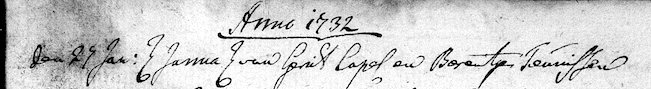 Anno 1732
den 27 Jan: Janna van Gerrit Capel en Berentje Teunissen